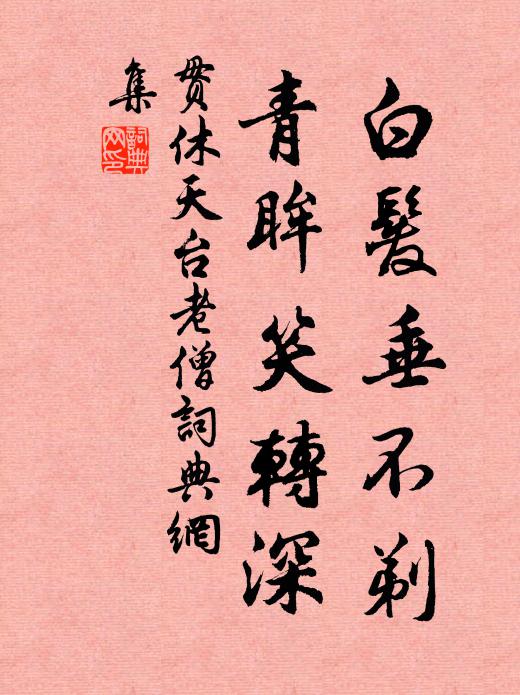 白髮垂不剃
青眸笑轉深
貫休天台老僧詞典網
集
詞典
网印